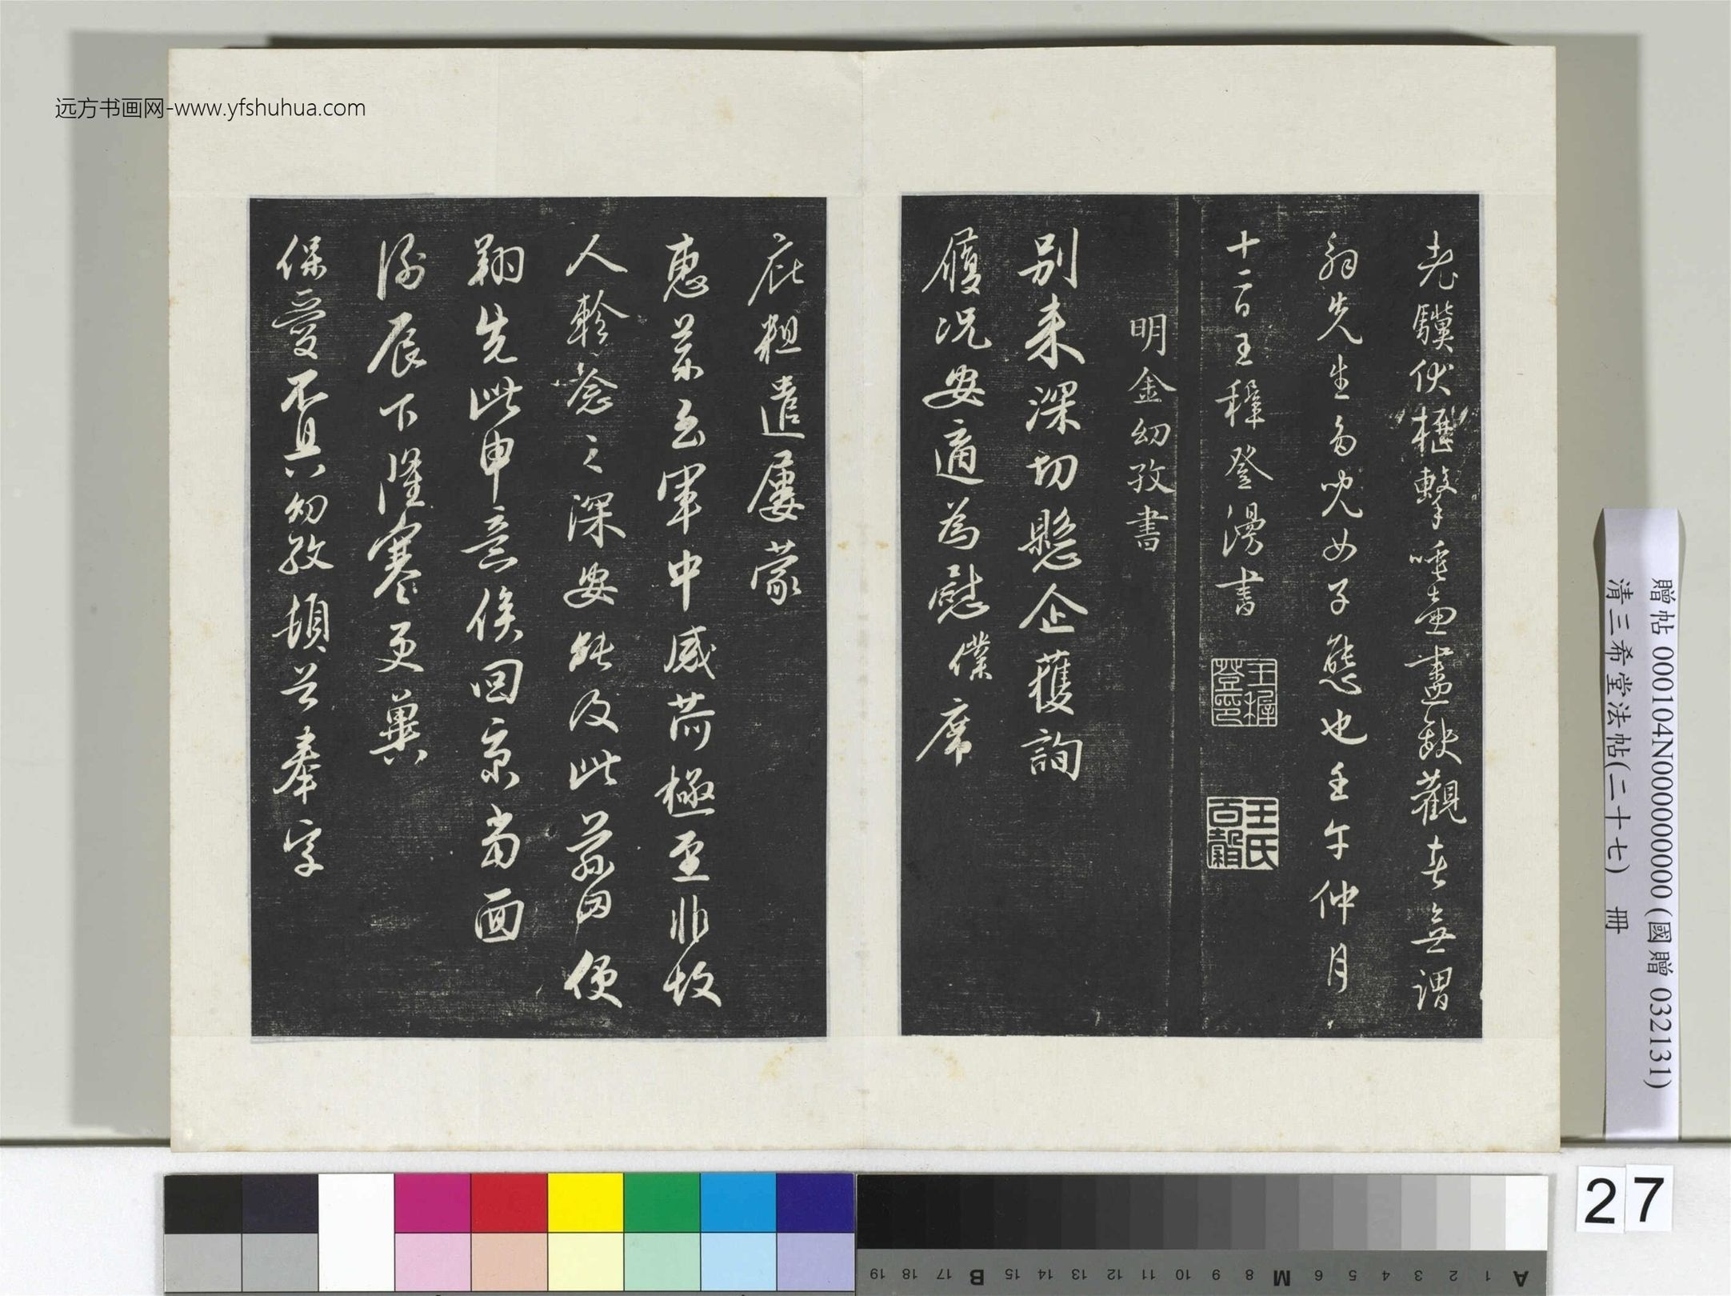 远方书画网-www.yfshuhua.com
老驥伏櫪擊唾壺盡缺觀者無謂
翁先生為兒女子態也壬午仲月
十二日王穉登漫書
王穉登印
王氏百穀
明金幼孜書
別來深切懸企獲詢
履況安適為慰僕席
庇粗遣屢蒙
惠茶至軍中感荷極至非故
人軫念之深安能及此茲因便
翔先此申意俟回京當面
謝辰下隆寒更冀
保愛不具幼孜頓首奉字
贈帖 000104N000000000 (國贈 032131)
清三希堂法帖(二十七) 冊
27
A 1 2 3 4 5 6 M 8 9 10 11 12 13 14 15 B 17 18 19